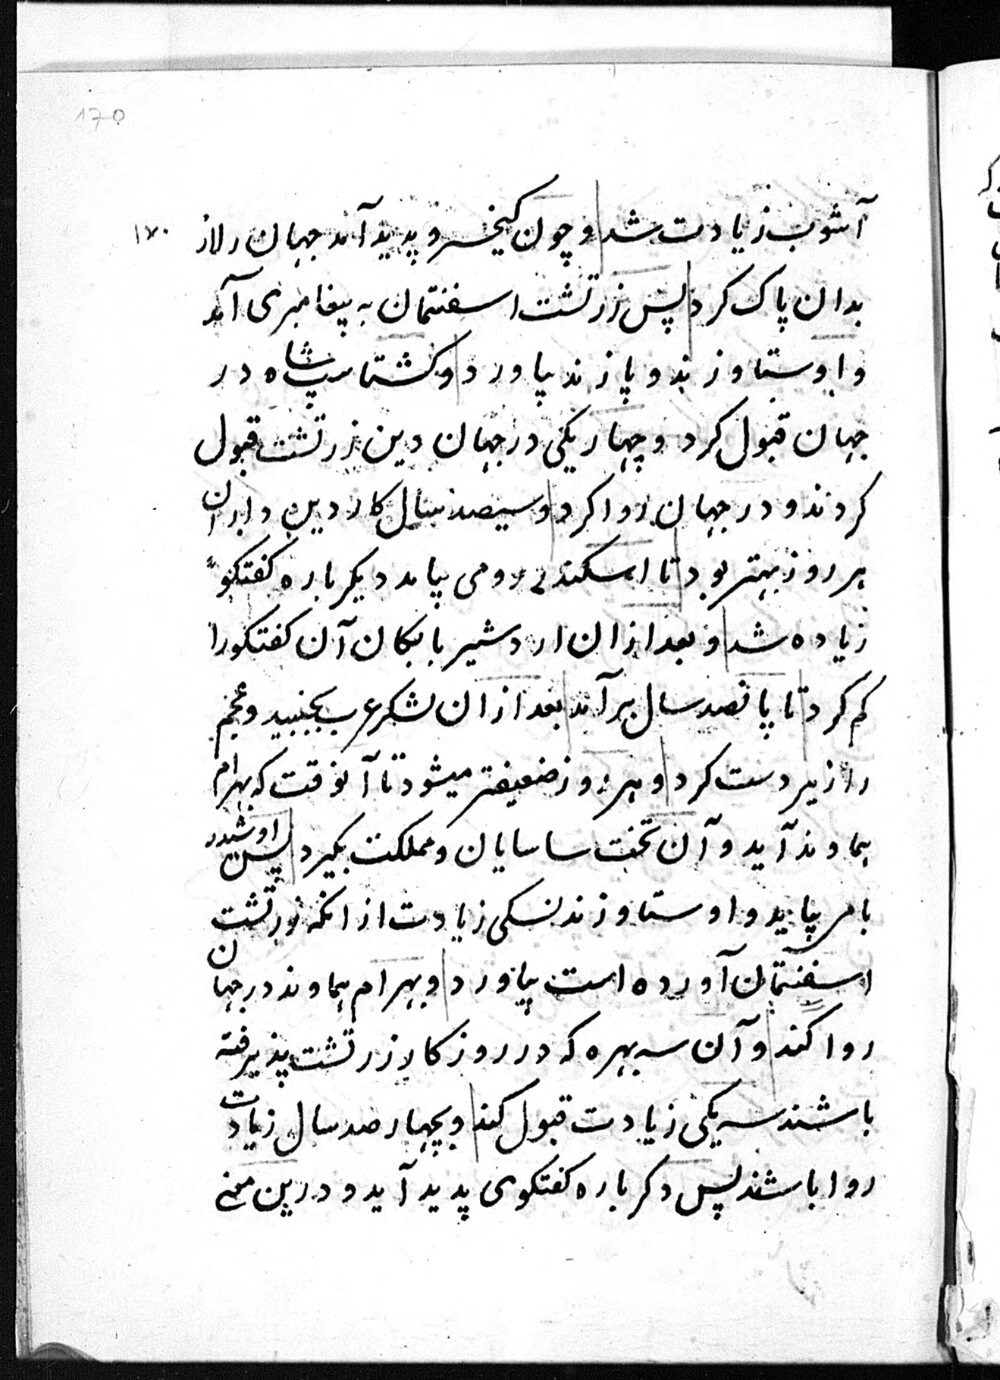 170
۱۷۰
آشوب زیادت شد و چون کیخسرو پدید آمد جهان را از
بدان پاک کرد پس زرتشت اسفنتمان به پیغامبری آمد
و اوستا و زند و پازند بیاورد و کشتاسپ شاه در
جهان قبول کرد و چهار یکی در جهان دین زرتشت قبول
کردند و در جهان روا کرد و سیصد سال کار دین داران
هر روز بهتر بود تا اسکندر رومی بیامد دیکر باره کفتکو
زیاده شد و بعد ازان اردشیر بابکان آن کفتکو را
کم کرد تا پانصد سال بر آمد بعد ازان لشکر عرب بجنبید و عجم
را زیر دست کرد و هر روز ضعیفتر میشود تا آنوقت که بهرام
هماوند آید و آن تخت ساسایان و مملکت بکیرد پس اوشیدر
بامی بیاید و اوستا و زند نسکی زیادت از انکه زرتشت
اسفنتمان آورده است بیاورد و بهرام هماوند در جهان
روا کند و آن سه بهره که در روزکار زرتشت پذیرفته
باشند سه یکی زیادت قبول کند و بچهار صد سال زیادت
روا باشند پس دکر باره کفتکوی پدید آید و درین